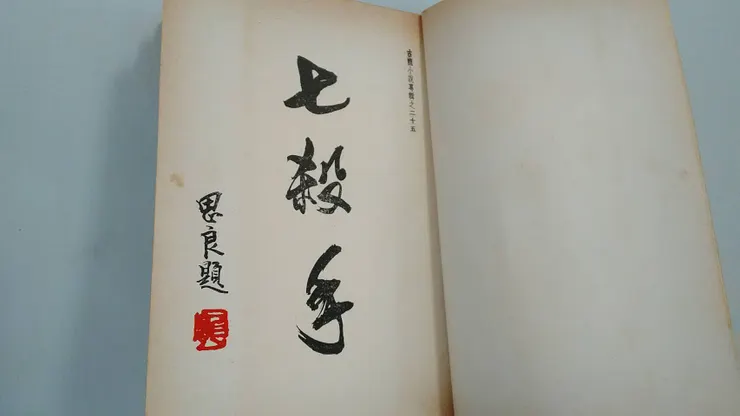 古龍小說專輯之二十五
七殺手
思良題